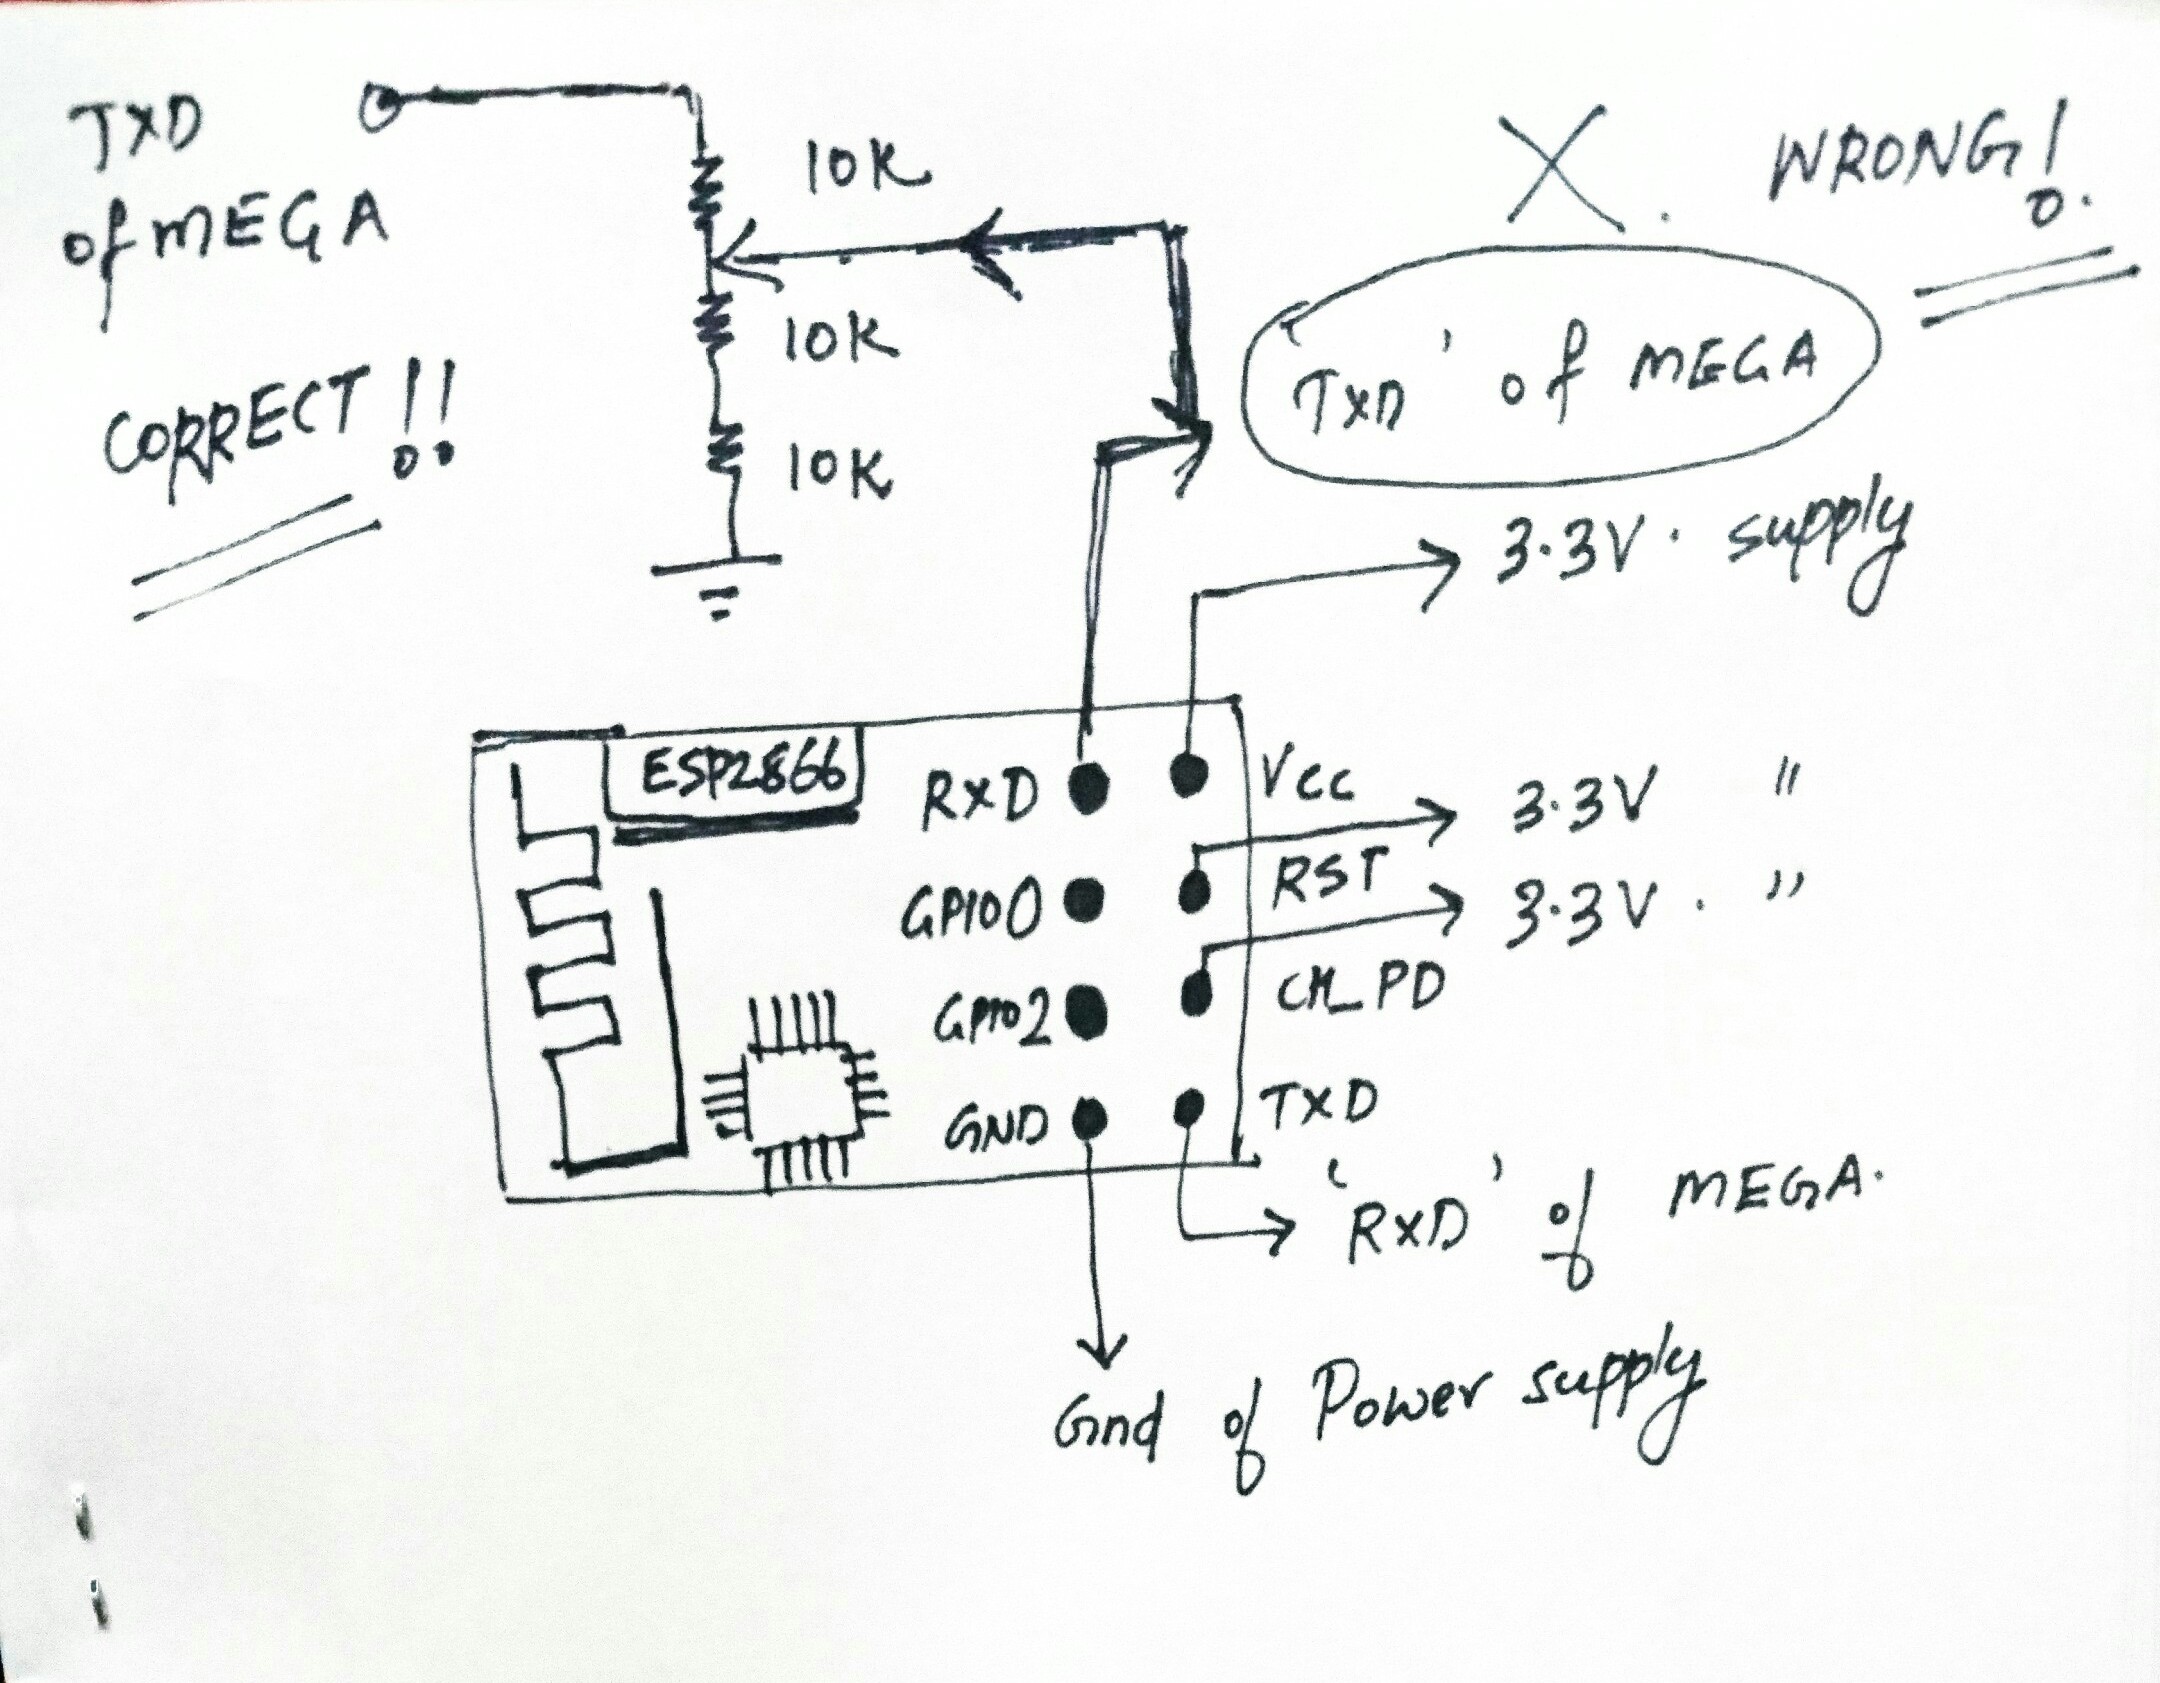 TXD
of MEGA
CORRECT!!
10K
10K
10K
X. WRONG!
'TXD' of MEGA
3.3V. supply
ESP2866
RXD
VCC
3.3V "
GPIO0
RST
3.3V. "
GPIO2
CH_PD
GND
TXD
'RXD' of MEGA.
Gnd of Power supply